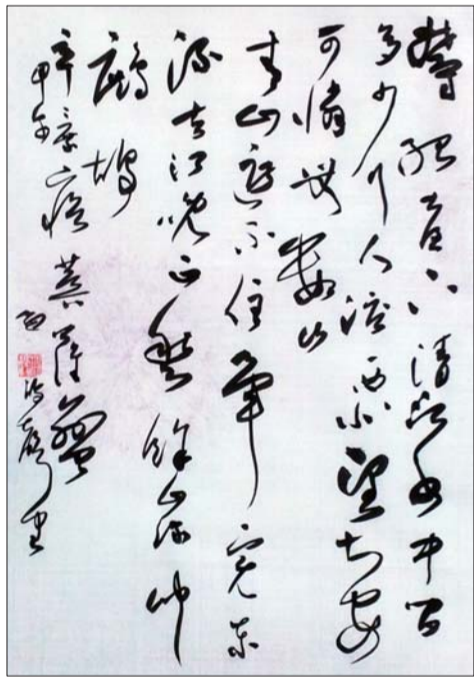 鬱孤臺下清江水中間
多少行人淚西北望長安
可憐無數山
青山遮不住畢竟東
流去江晚正愁余山深聞
鷓鴣
辛棄疾菩薩蠻
甲午